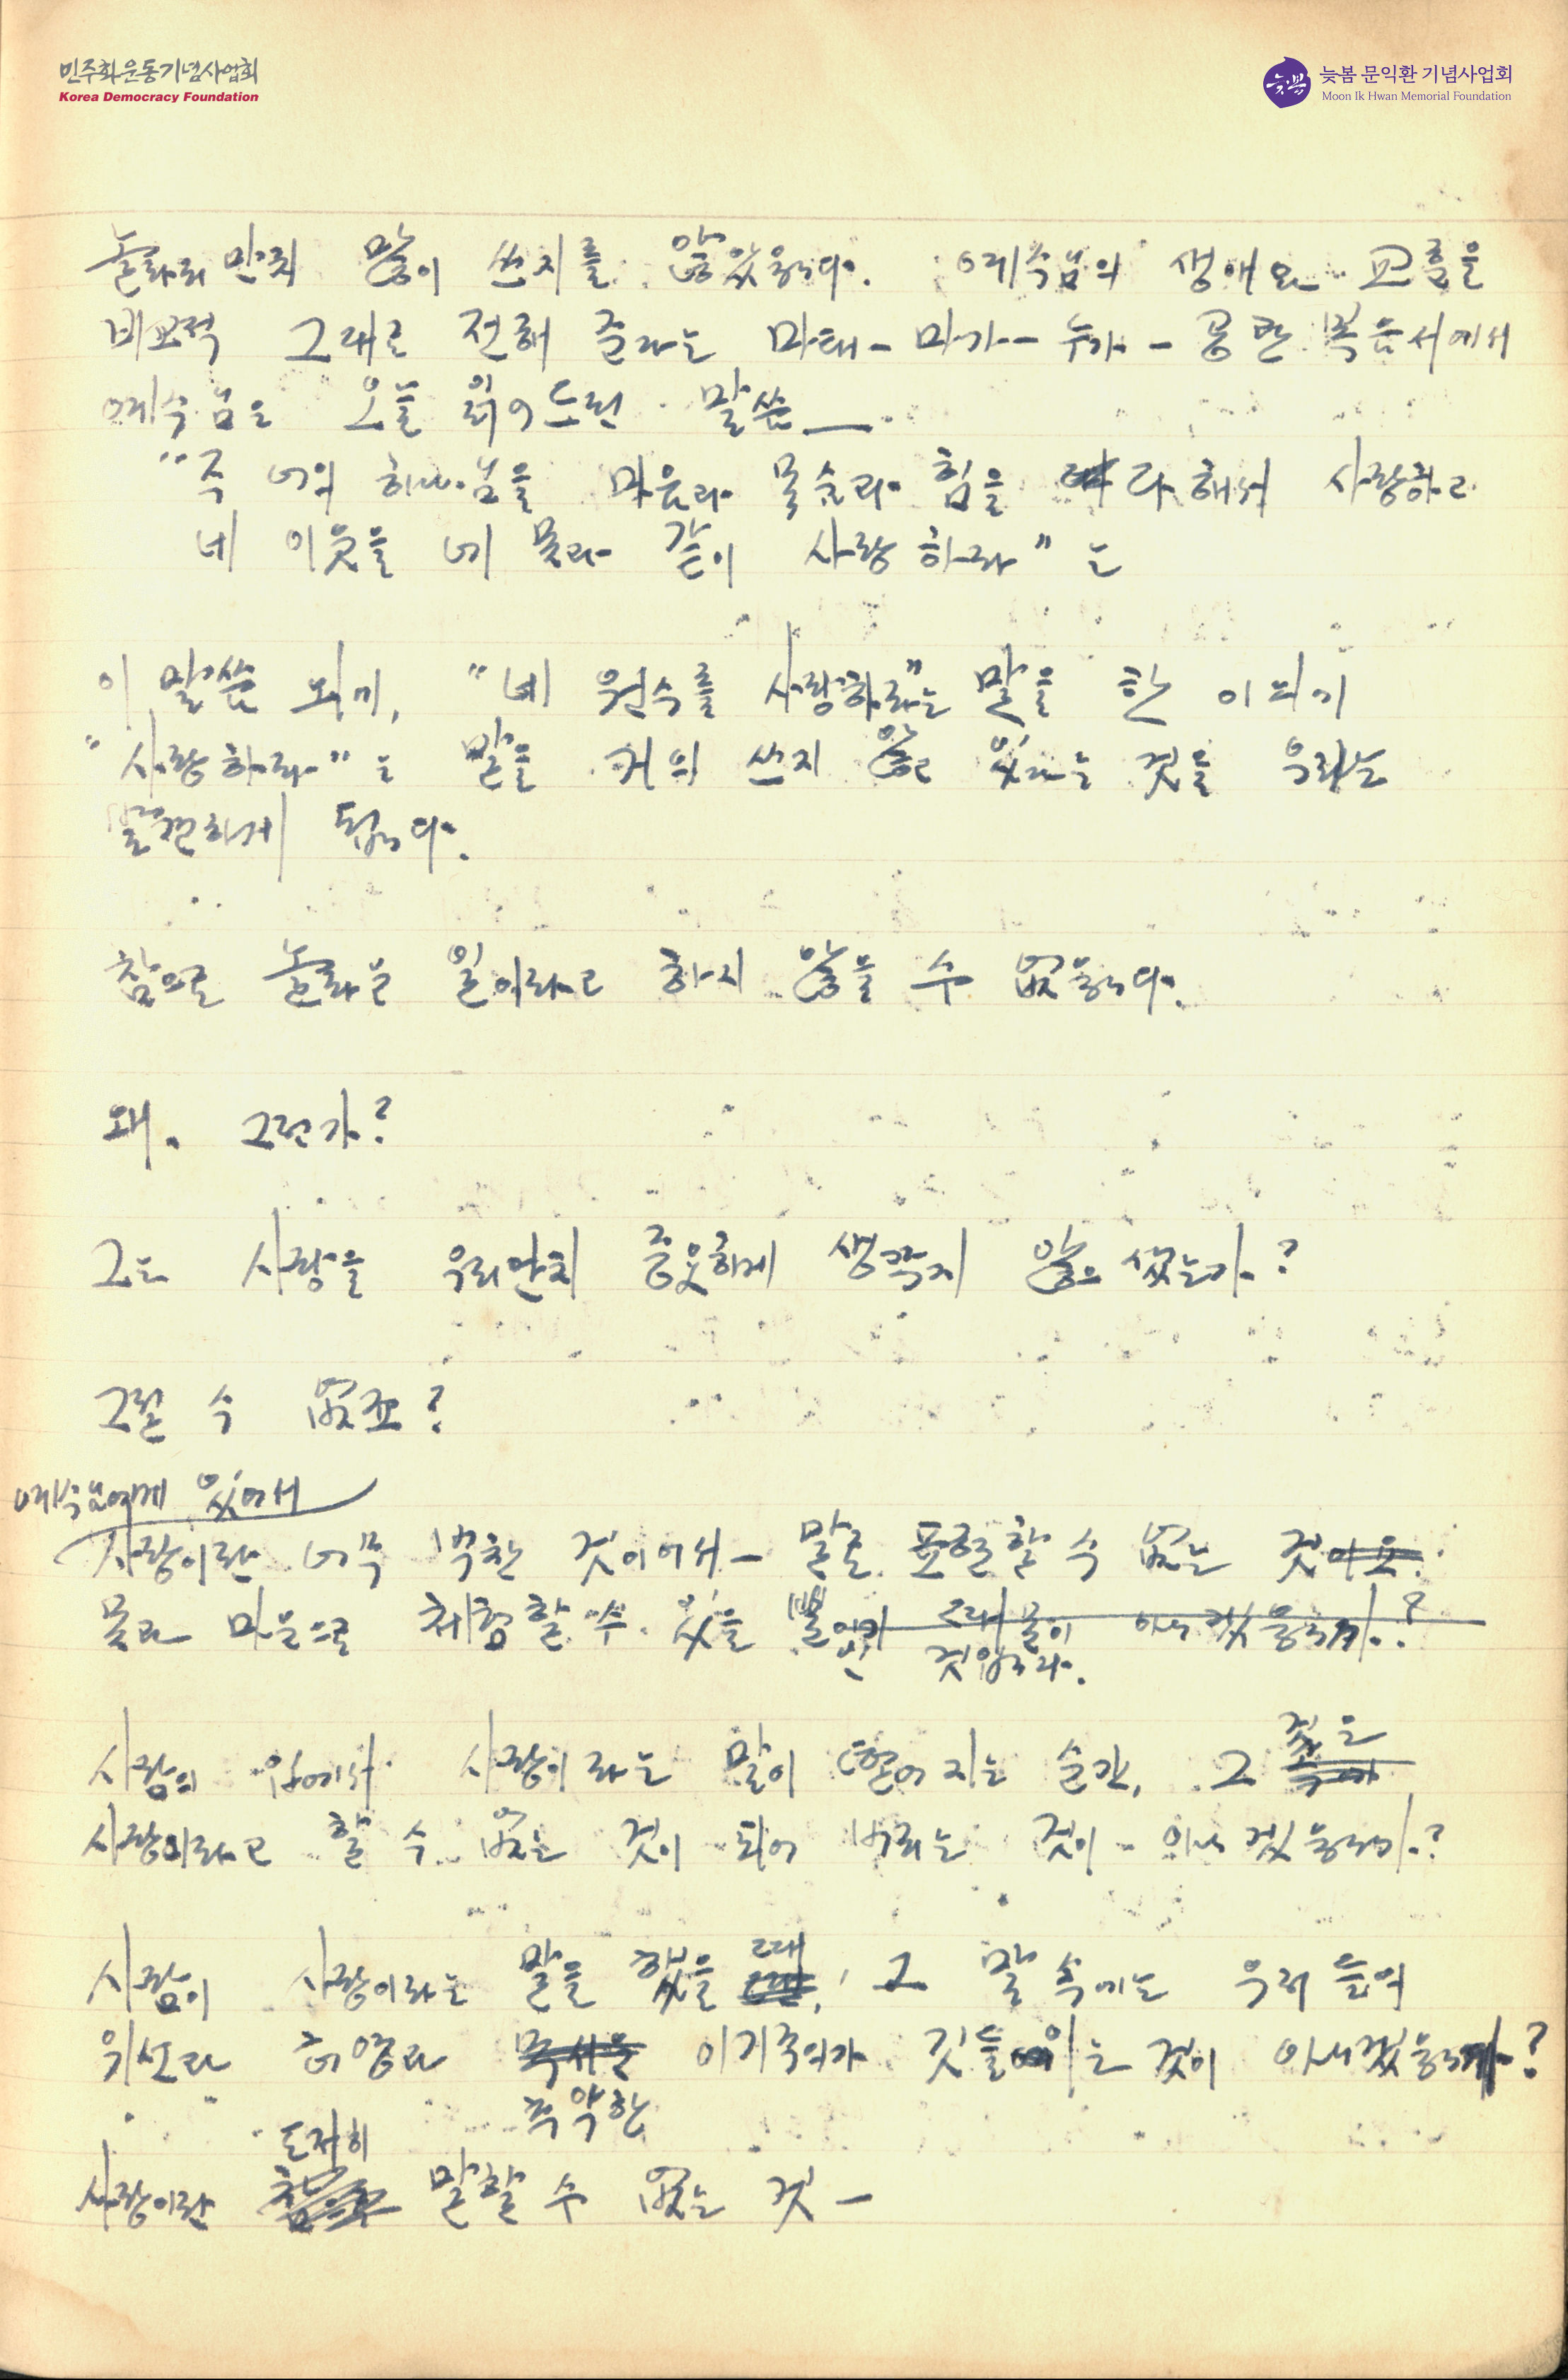 민주화운동기념사업회
Korea Democracy Foundation
늦봄 문익환 기념사업회
Moon Ik Hwan Memorial Foundation
놀라리만치 많이 쓰지를 않았읍니다. 예수님의 생애와 교훈을
비교적 그대로 전해 준다는 마태-마가-누가-공관복음서에서
예수님은 오늘 읽어드린 말씀—
"주 너의 하나님을 마음과 목숨과 힘을 다해서 사랑하고
네 이웃을 네 몸과 같이 사랑하라"는
이 말씀 외에, "네 원수를 사랑하라"는 말을 한 이외에
"사랑하라"는 말을 거의 쓰지 않고 있다는 것을 우리는
발견하게 됩니다.
참으로 놀라운 일이라고 하지 않을 수 없읍니다.
왜. 그런가?
그는 사랑을 우리만치 중요하게 생각지 않으셨는가?
그럴 수 없죠?
예수님에게 있어서
사랑이란 너무 벅찬 것이어서- 말로 표현할 수 없는 것이요.
몸과 마음으로 체험할 수 있을 뿐인 것입니다.
그래 몰이 아니겠읍니까?
사람의 입에서 사랑이라는 말이 떨어지는 순간, 그 것은
사랑이라고 할 수 없는 것이 되어 버리는 것이- 아니겠읍니까?
사람이 사랑이라는 말을 했을 때, 그 말 속에는 우리들의
위선과 허영과 이기주의가 깃들이는 것이 아니겠읍니까?
추악한
도저히
사랑이란 참으로 말할 수 없는 것-